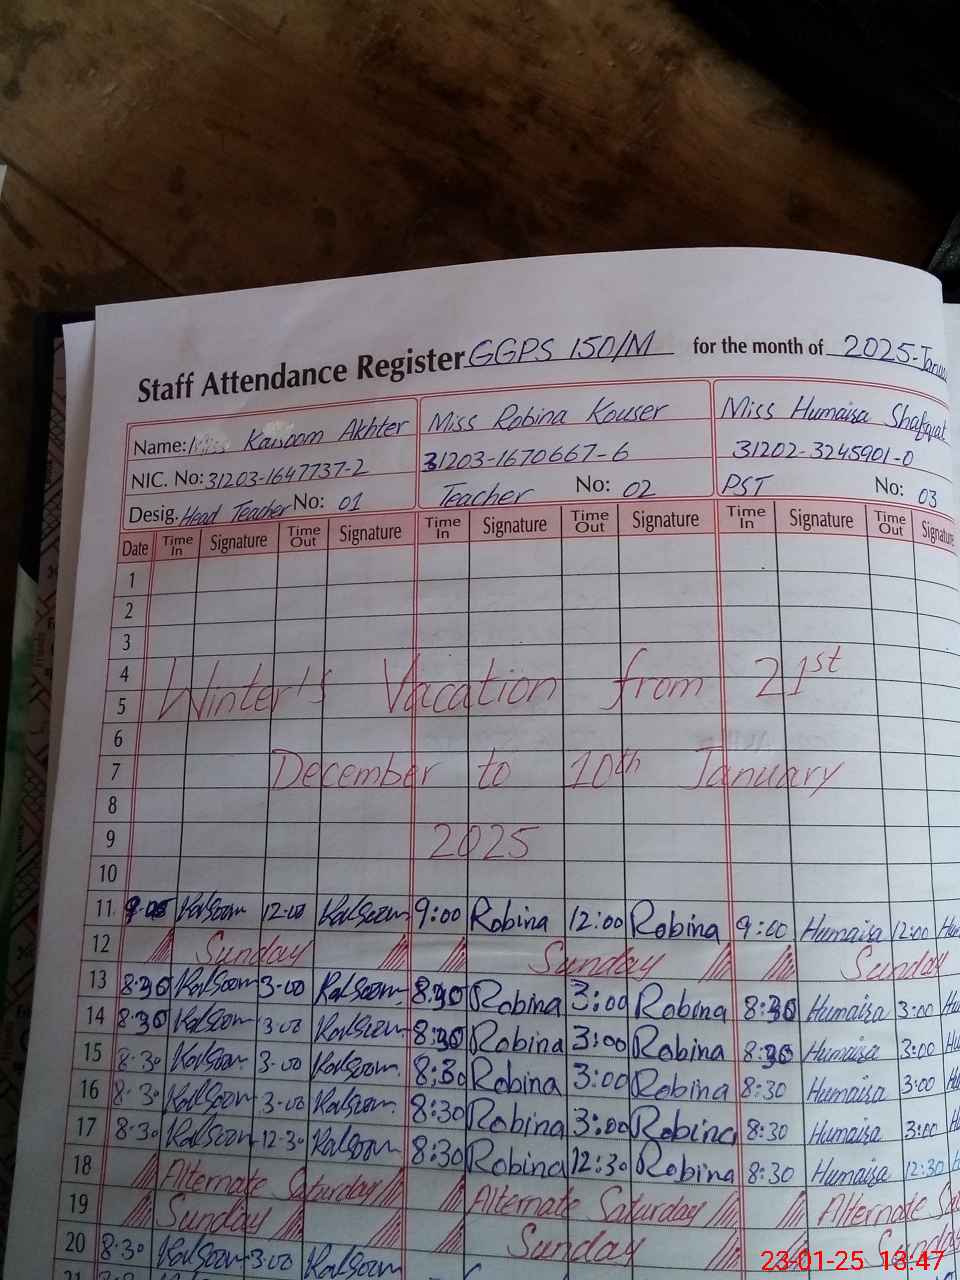 Staff Attendance Register GGPS 150/M for the month of 2025-Janu
Name: Miss Kalsoom Akhter Miss Robina Kouser Miss Humaisa Shafqat
NIC. No: 31203-1647737-2 31203-1670667-6 31202-3245901-0
Desig. Head Teacher No: 01 Teacher No: 02 PST No: 03
Date Time In Signature Time Out Signature Time In Signature Time Out Signature Time In Signature Time Out Signature
1
2
3
4
Winter's Vacation from 21st
5
6
7 December to 10th January
8
9 2025
10
11 9:00 Kalsoom 12:00 Kalsoom 9:00 Robina 12:00 Robina 9:00 Humaisa 12:00
12 Sunday Sunday Sunday
13 8:30 Kalsoom 3:00 Kalsoom 8:30 Robina 3:00 Robina 8:30 Humaisa 3:00
14 8:30 Kalsoom 3:00 Kalsoom 8:30 Robina 3:00 Robina 8:30 Humaisa 3:00
15 8:30 Kalsoom 3:00 Kalsoom 8:30 Robina 3:00 Robina 8:30 Humaisa 3:00
16 8:30 Kalsoom 3:00 Kalsoom 8:30 Robina 3:00 Robina 8:30 Humaisa 3:00
17 8:30 Kalsoom 12:30 Kalsoom 8:30 Robina 12:30 Robina 8:30 Humaisa 12:30
18 Alternate Saturday Alternate Saturday Alternate
19 Sunday Sunday Sunday
20 8:30 Kalsoom 3:00 Kalsoom
23-01-25 13:47